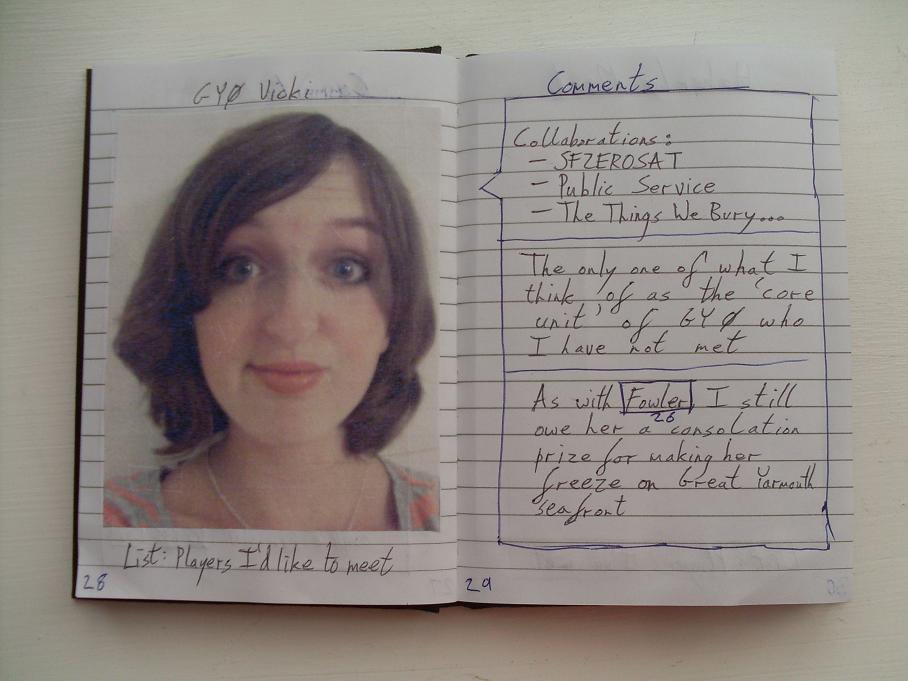 GYØ Vicki
List: Players I'd like to meet
28
Comments
Collaborations:
– SFZEROSAT
– Public Service
– The Things We Bury...
The only one of what I
think of as the 'core
unit' of GYØ who
I have not met
As with Fowler, I still
26
owe her a consolation
prize for making her
freeze on Great Yarmouth
seafront
29